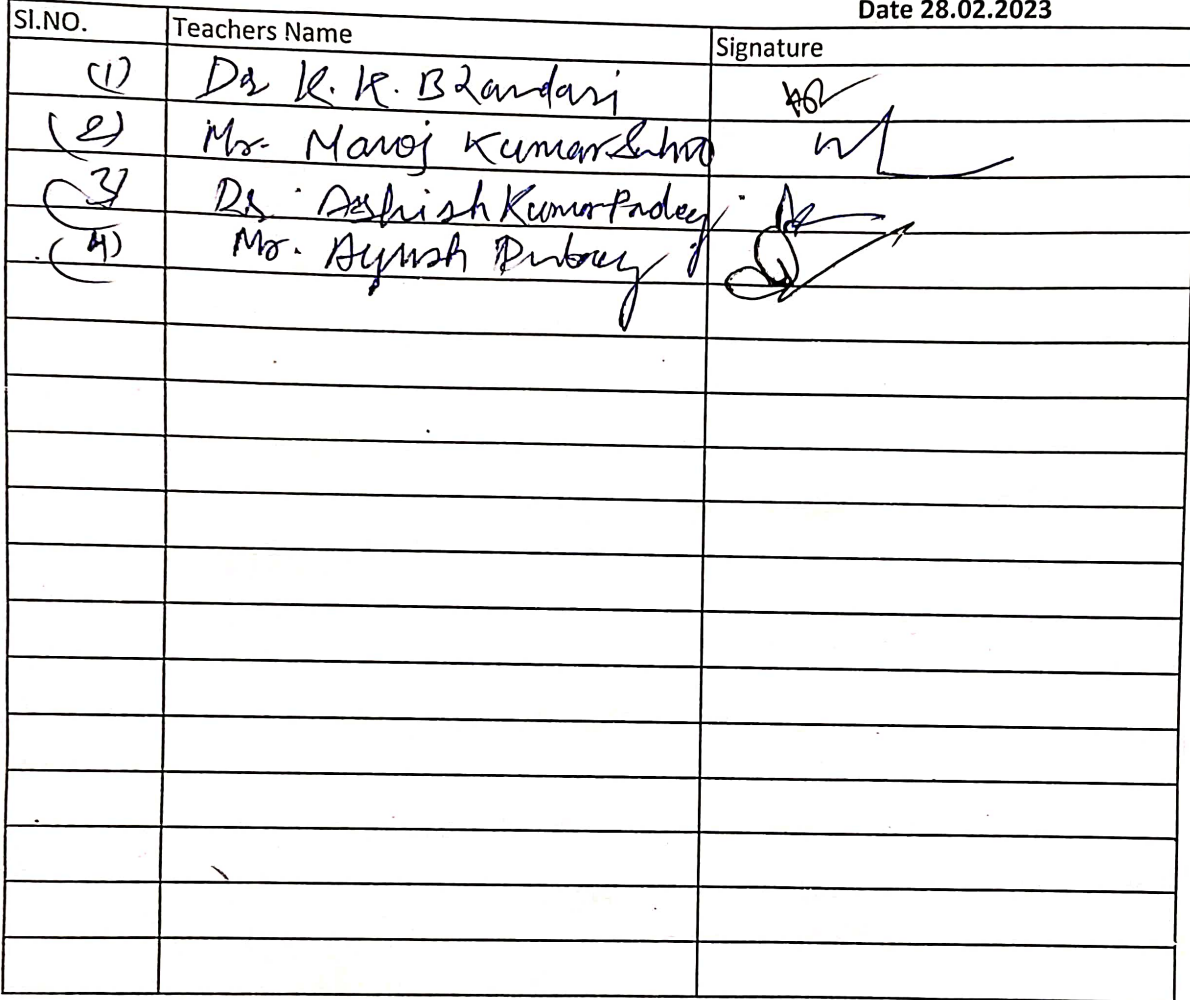 Date 28.02.2023
Sl.NO. Teachers Name Signature
(1) Dr K. K. Bhandari
(2) Mr. Manoj Kumar Sahoo
(3) Dr. Ashish Kumar Pandey
(4) Mr. Ayush Dubey